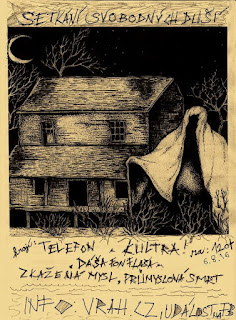 SETKÁNÍ SVOBODNÝCH DUŠÍ
hrají: TELEFON * KULTRA!
DÁŠA FON FLÁŠA
ZKAŽENÁ MYSL, PRŮMYSLOVÁ SMRT
6.8.16
INFO: VRAH.CZ, UDÁLOST NA FB